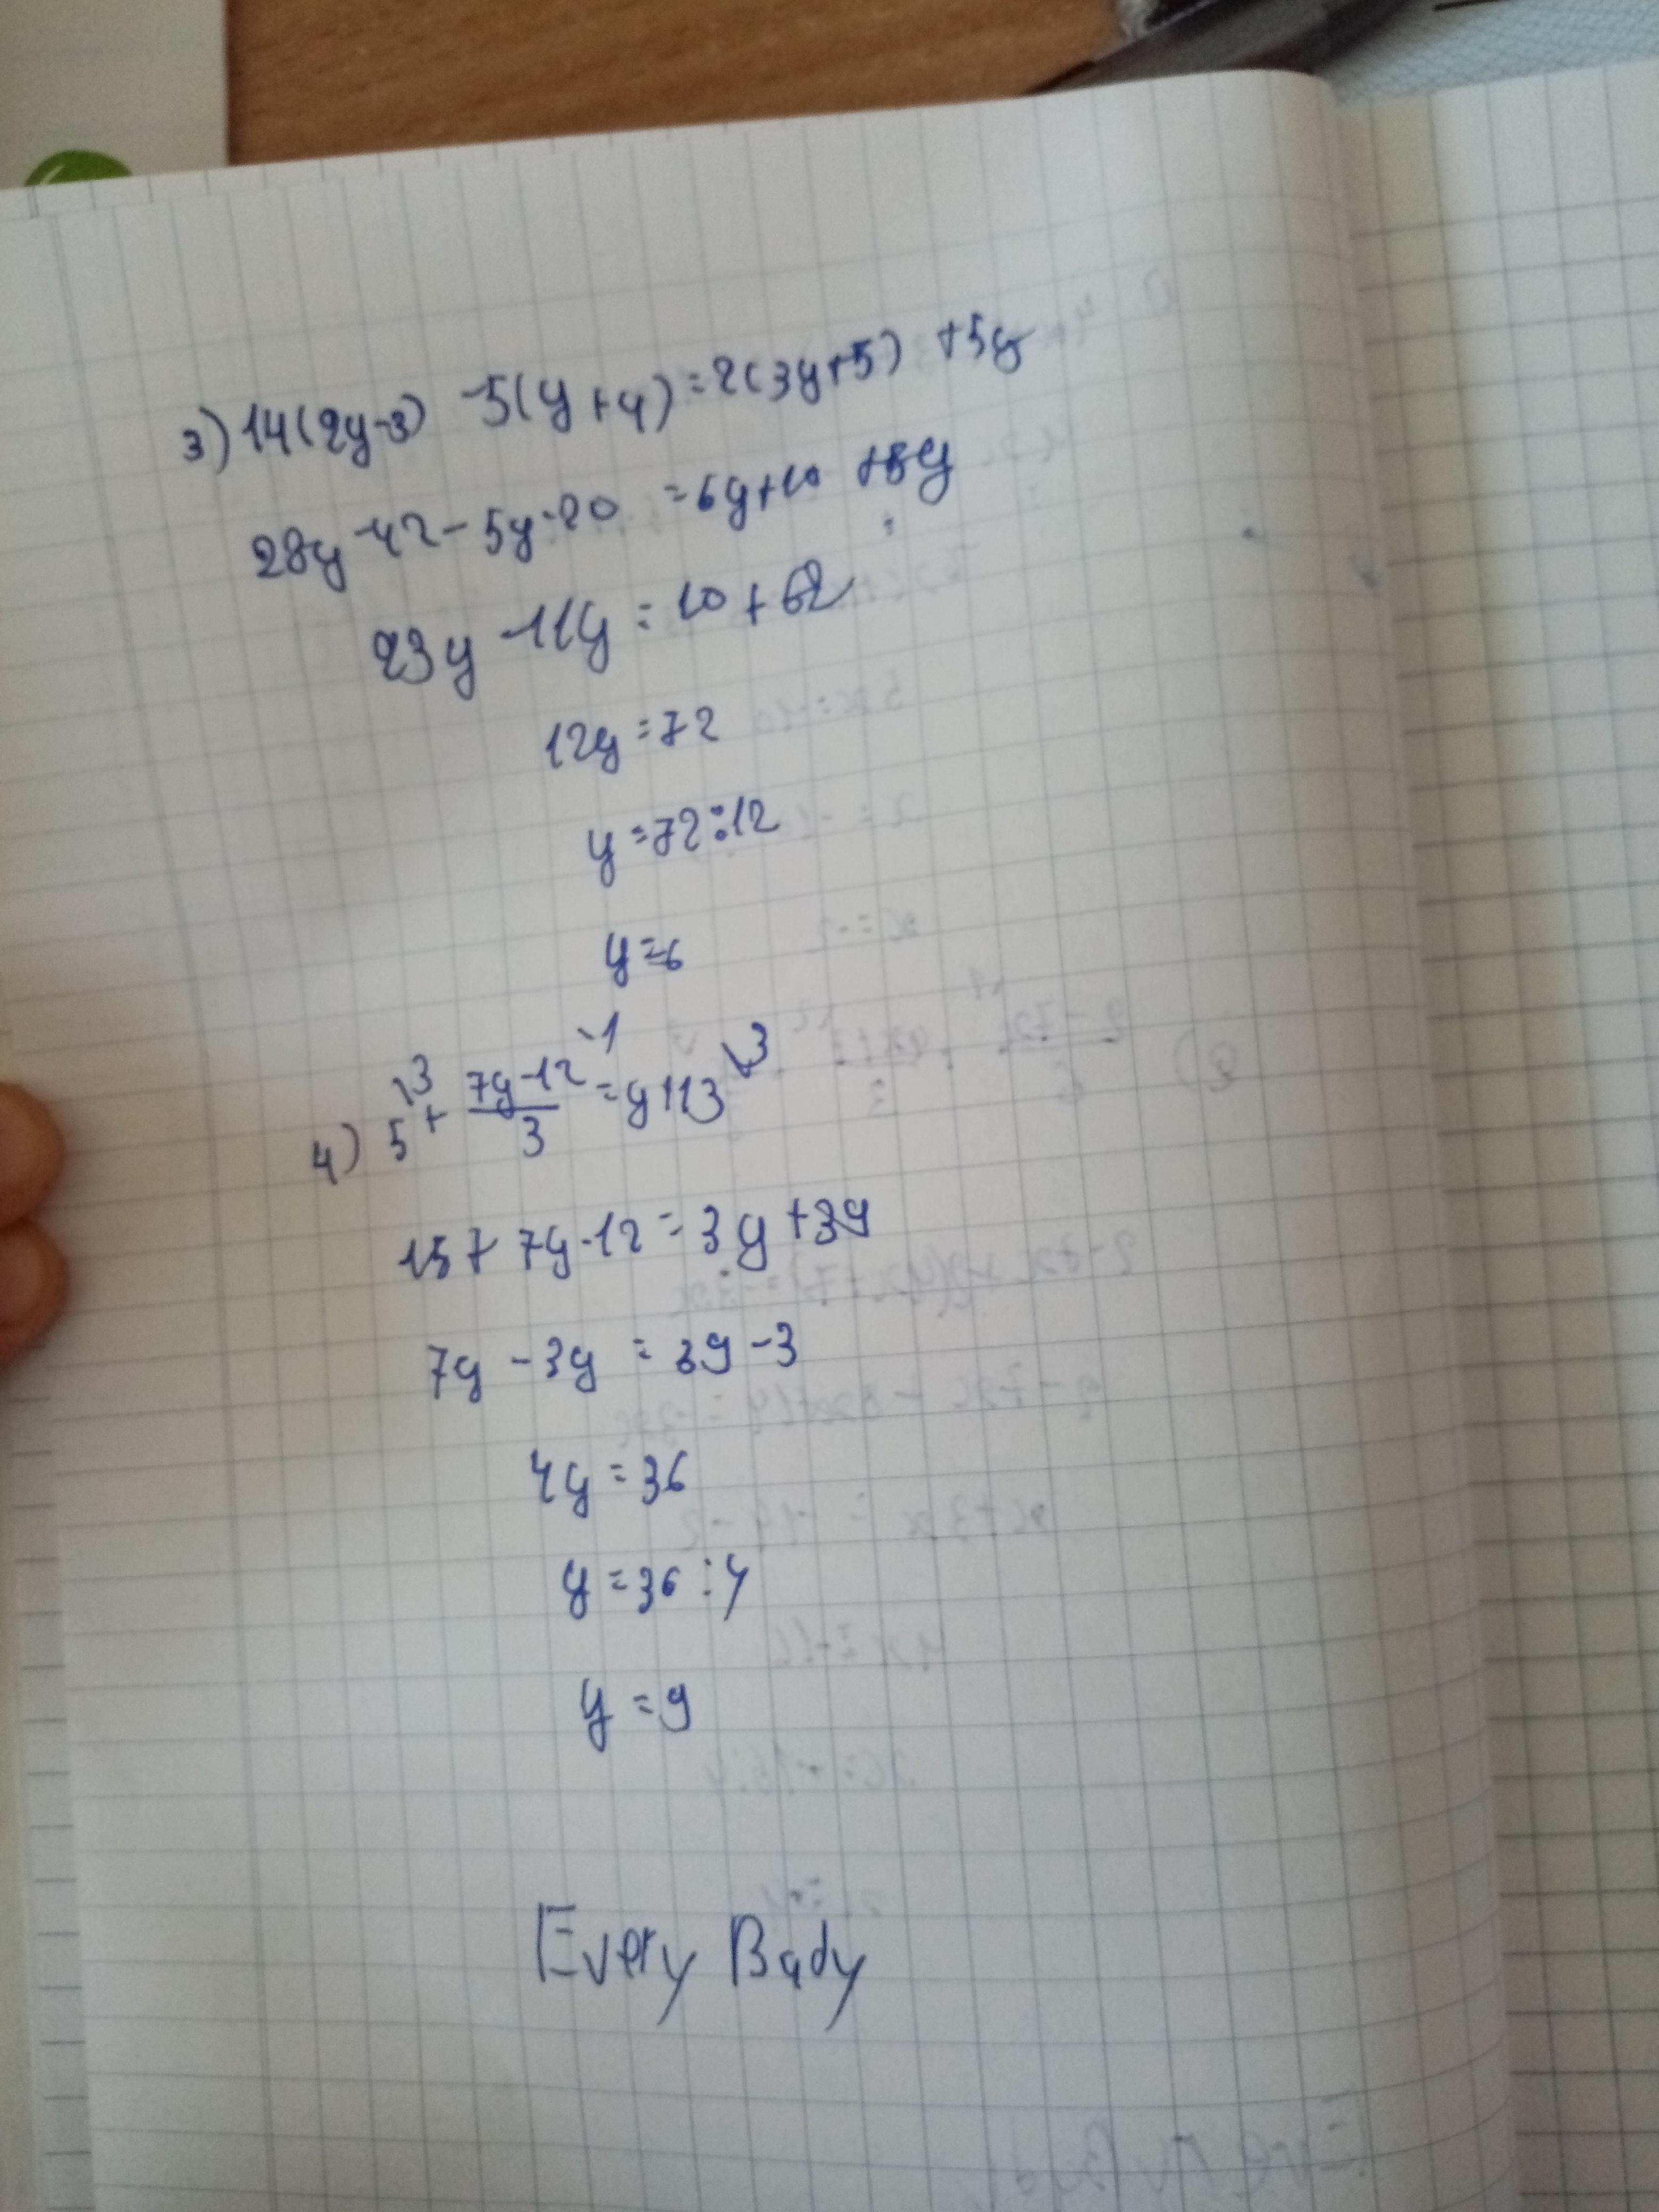 3) 14(2y-3) -5(y+4)=2(3y+5) +5y
28y-42-5y-20 =6y+10 +5y
23y-11y=10+62
12y=72
y=72:12
y=6
4) 5\3 + 7y-12\1 / 3 = y+13\3
15+7y-12=3y+39
7y-3y=39-3
4y=36
y=36:4
y=9
Every Bady